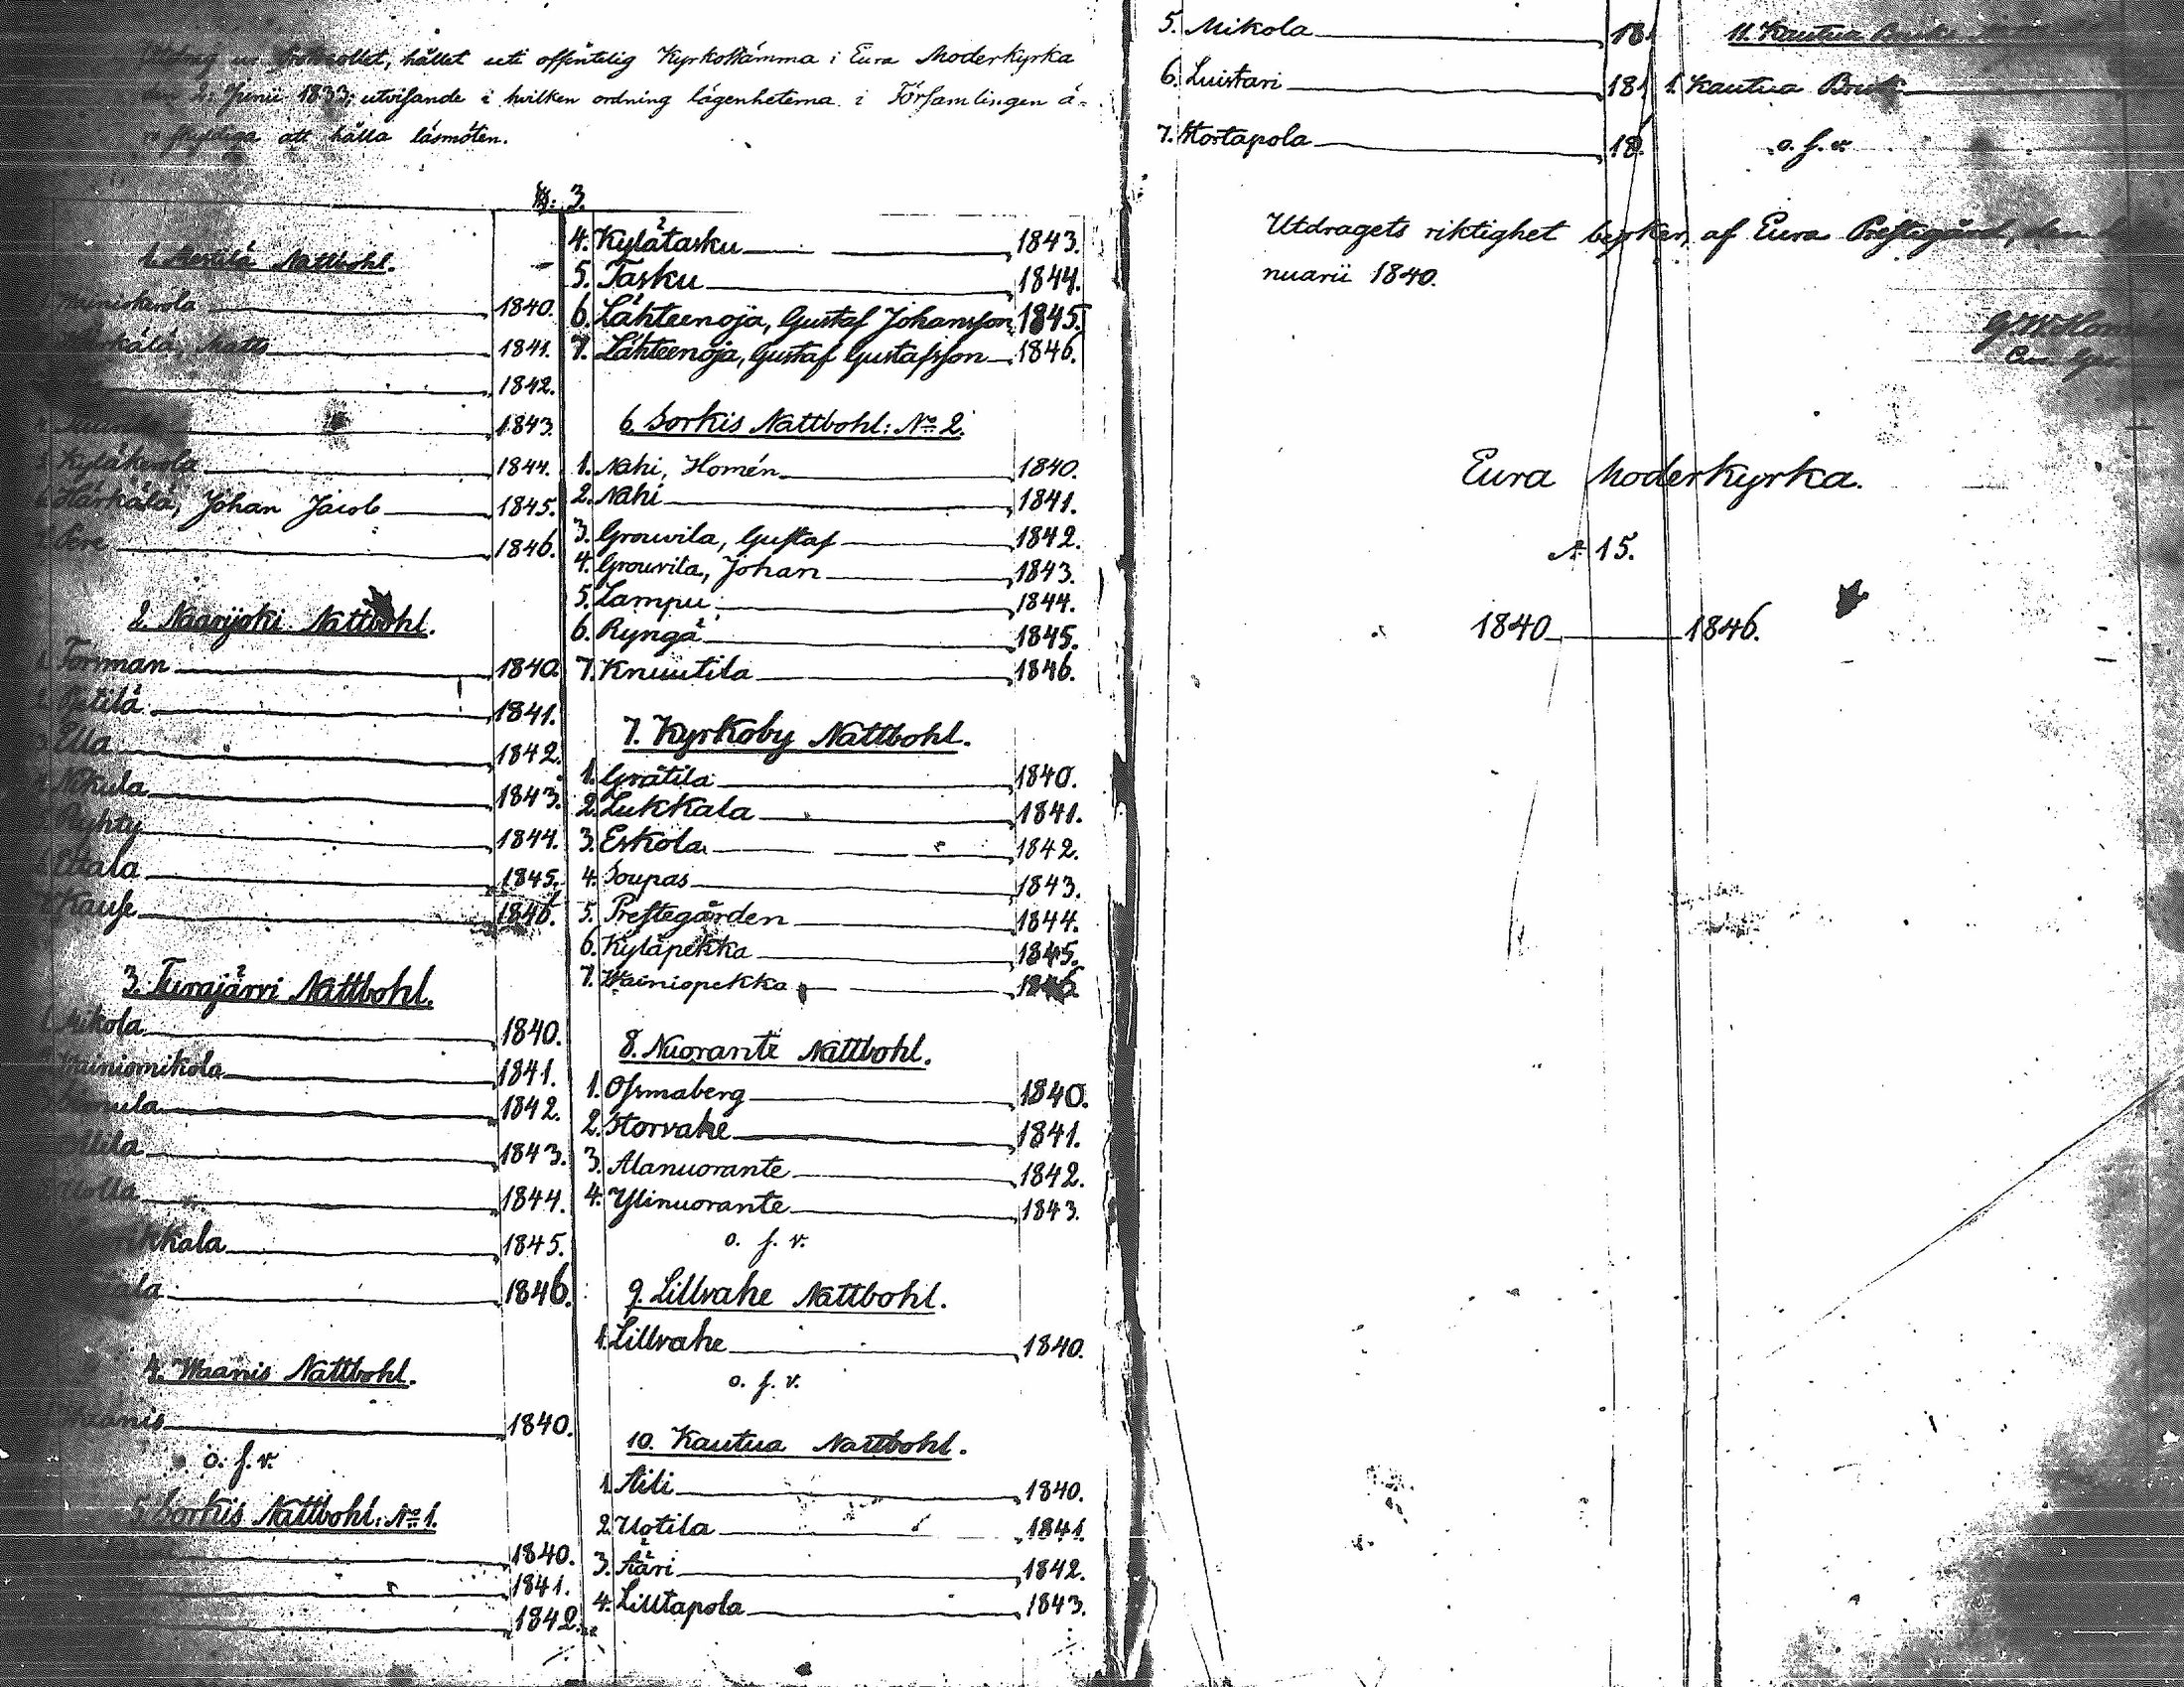 Utdrag ur Protocollet, hållet uti offentelig Kyrkostämma i Eura Moderkyrka
den 2. Junii 1833; utvisande i hvilken ordning lägenheterna i Församlingen ä-
ro skyldiga att hålla läsmöten.
§: 3.
Nattbohl.
1840.
Härkälä, Matts 1841.
1842.
1843.
5. Kyläkerola 1844.
6. Härkälä, Johan Jacob 1845.
7. Pere 1846.
2. Naarijoki Nattbohl.
1. Tornman 1840.
2. Pertilä 1841.
3. Ella 1842.
4. Nikula 1843.
5. Ryhty 1844.
6. 1845.
7. Kause 1846.
3. Turajärvi Nattbohl.
1. Mikola 1840.
Wäiniömikola 1841.
1842.
1843.
1844.
1845.
1846.
4. Waanis Nattbohl.
Waanis 1840.
o. s. v.
5. Sorkis Nattbohl: No 1.
1840.
1841.
1842.
4. Kylätasku 1843.
5. Tasku 1844.
6. Lähteenoja, Gustaf Johansson 1845.
7. Lähteenoja, Gustaf Gustafsson 1846.
6. Sorkis Nattbohl: No 2.
1. Nahi, Homén 1840.
2. Nahi 1841.
3. Grouvila, Gustaf 1842.
4. Grouvila, Johan 1843.
5. Lampu 1844.
6. Ryngä 1845.
7. Knuutila 1846.
7. Kyrkoby Nattbohl.
1. Grätilä 1840.
2. Lukkala 1841.
3. Eskola 1842.
4. Soupas 1843.
5. Prestegården 1844.
6. Kyläpekka 1845.
7. Wäiniopekka 1846.
8. Nuorante Nattbohl.
1. Osmaberg 1840.
2. Storvahe 1841.
3. Alanuorante 1842.
4. Ylinuorante 1843.
o. s. v.
9. Lillvahe Nattbohl.
1. Lillvahe 1840.
o. s. v.
10. Kautua Nattbohl.
1. Aili 1840.
2. Uotila 1841.
3. Ääri 1842.
4. Lilltapola 1843.
5. Mikola 18
6. Luistari 18
7. Stortapola 18
11. Kautua Bruks
1. Kautua Bruk
o. s. v.
Utdragets riktighet betyker, af Eura Prestegård, den
nuarii 1840.
Eura Moderkyrka.
№ 15.
1840 1846.